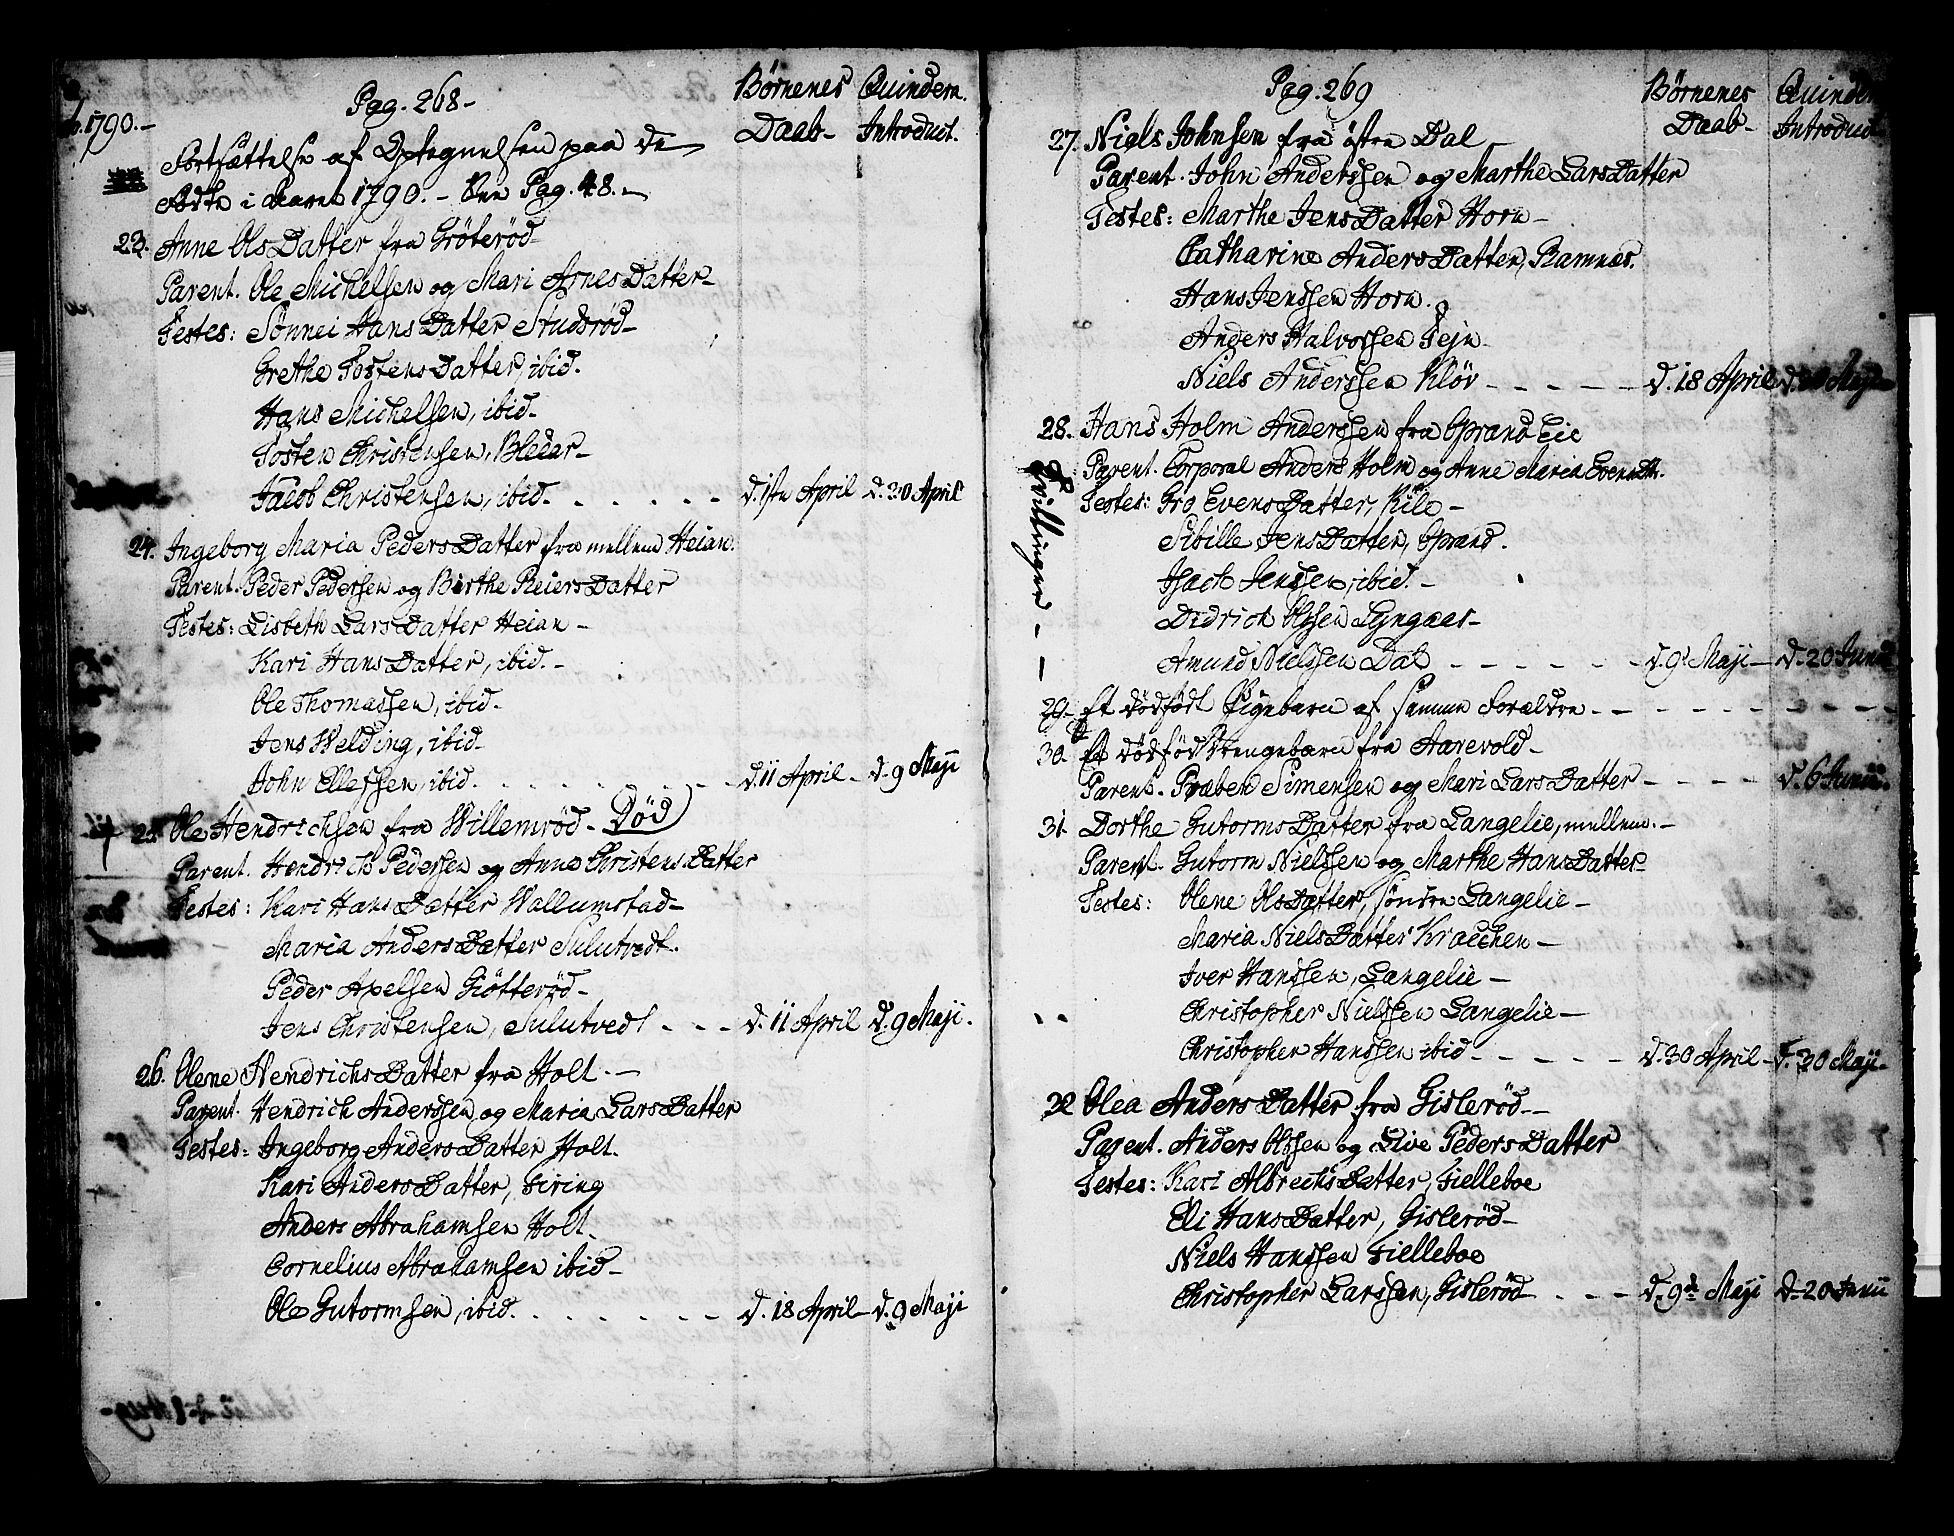 Pag. 268-
Børnenes Quindern.
Daab- Introduct.
1790.-
Fortsættelse af Optegnelsen paa de
Fødte i Aaret 1790. - See Pag. 48.-
23. Anne OlsDatter fra Gröterød-
Parent. Ole Michelsen og Mari ArnesDatter-
Testes: Sönnei HansDatter Studsrød-
Grethe TostensDatter, ibid.
Hans Michelsen, ibid-
Tosten Christensen,
Jacob Christensen, ibid. - - - - - d. 1ste April d. 30 April
24. Ingeborg Maria PedersDatter fra mellem Heian.
Parent. Peder Pedersen og Birthe ReiersDatter
Testes: Lisbeth LarsDatter Heian -
Kari HansDatter, ibid.-
Ole Thomassen, ibid-
Jens Welding, ibid-
John Ellefsen, ibid. - - - - - d 11 April- d. 9 Maji
25. Ole Hendrichsen fra Willemrød- Död
Parent. Hendrich Pedersen og Anne ChristensDatter
Testes: Kari HansDatter Wallumstad-
Maria AndersDatter Sulutvedt.
Peder Apelsen Giötterød-
Jens Christensen, Sulutvedt - - - d. 11 April d. 9 Maji.
26. Olene HendrichsDatter fra Holt.-
Parent. Hendrich Anderssen og Maria LarsDatter
Testes: Ingeborg AndersDatter Holt.
Kari AndersDatter, Firing
Anders Abrahamsen Holt.
Cornelius Abrahamsen ibid-
Ole Gutormsen, ibid. - - - - - d. 18 April- d. 9 Maji
Pag. 269
Børnenes Quindern
Daab- Introduct
27. Niels Johnsen fra østre Dal
Parent. John Anderssen og Marthe LarsDatter
Testes: Marthe JensDatter Horn-
Catharine AndersDatter, Ramnes.
Hans Jenssen Horn.
Anders Halvorssen Tejn
Niels Anderssen Kløv - - - - - d. 18 April d. Maji
28. Hans Holm Anderssen fra Eie
Parent. Corporal Anders Holm og Anne Maria
Testes: Gro EvensDatter, Kile -
Sibille JensDatter,
Isach Jenssen, ibid. -
Didrich Olssen Lyngaas-
Amund Nielssen Dal - - - - - d. 9d Maji - d. 20 Junii
Tvillinger - -
29. Et dödfödt Pigebarn af samme Forældre - - - - -
30. Et dödfød Drengebarn fra Aarevold-
Parent. Præben Simensen og Mari LarsDatter - - - - d. 6 Junii.
31. Dorthe GutormsDatter fra Langelie, mellem.-
Parent. Gutorm Nielssen og Marthe HansDatter-
Testes: Olene OlsDatter, söndre Langelie-
Maria NielsDatter Kracchen -
Iver Hanssen, Langelie-
Christopher Nielssen Langelie-
Christopher Hanssen ibid - - - - - d. 30 April - d. 30 Maji-
32 Olea AndersDatter fra Gislerød.-
Parent. Anders Olssen og Live PedersDatter
Testes: Kari AlbrechtsDatter, Fielleboe
Eli HansDatter, Gislerød-
Niels Hanssen Fielleboe
Christopher Larssen, Gislerød - - - d. 9d Maji d. 20 Junii